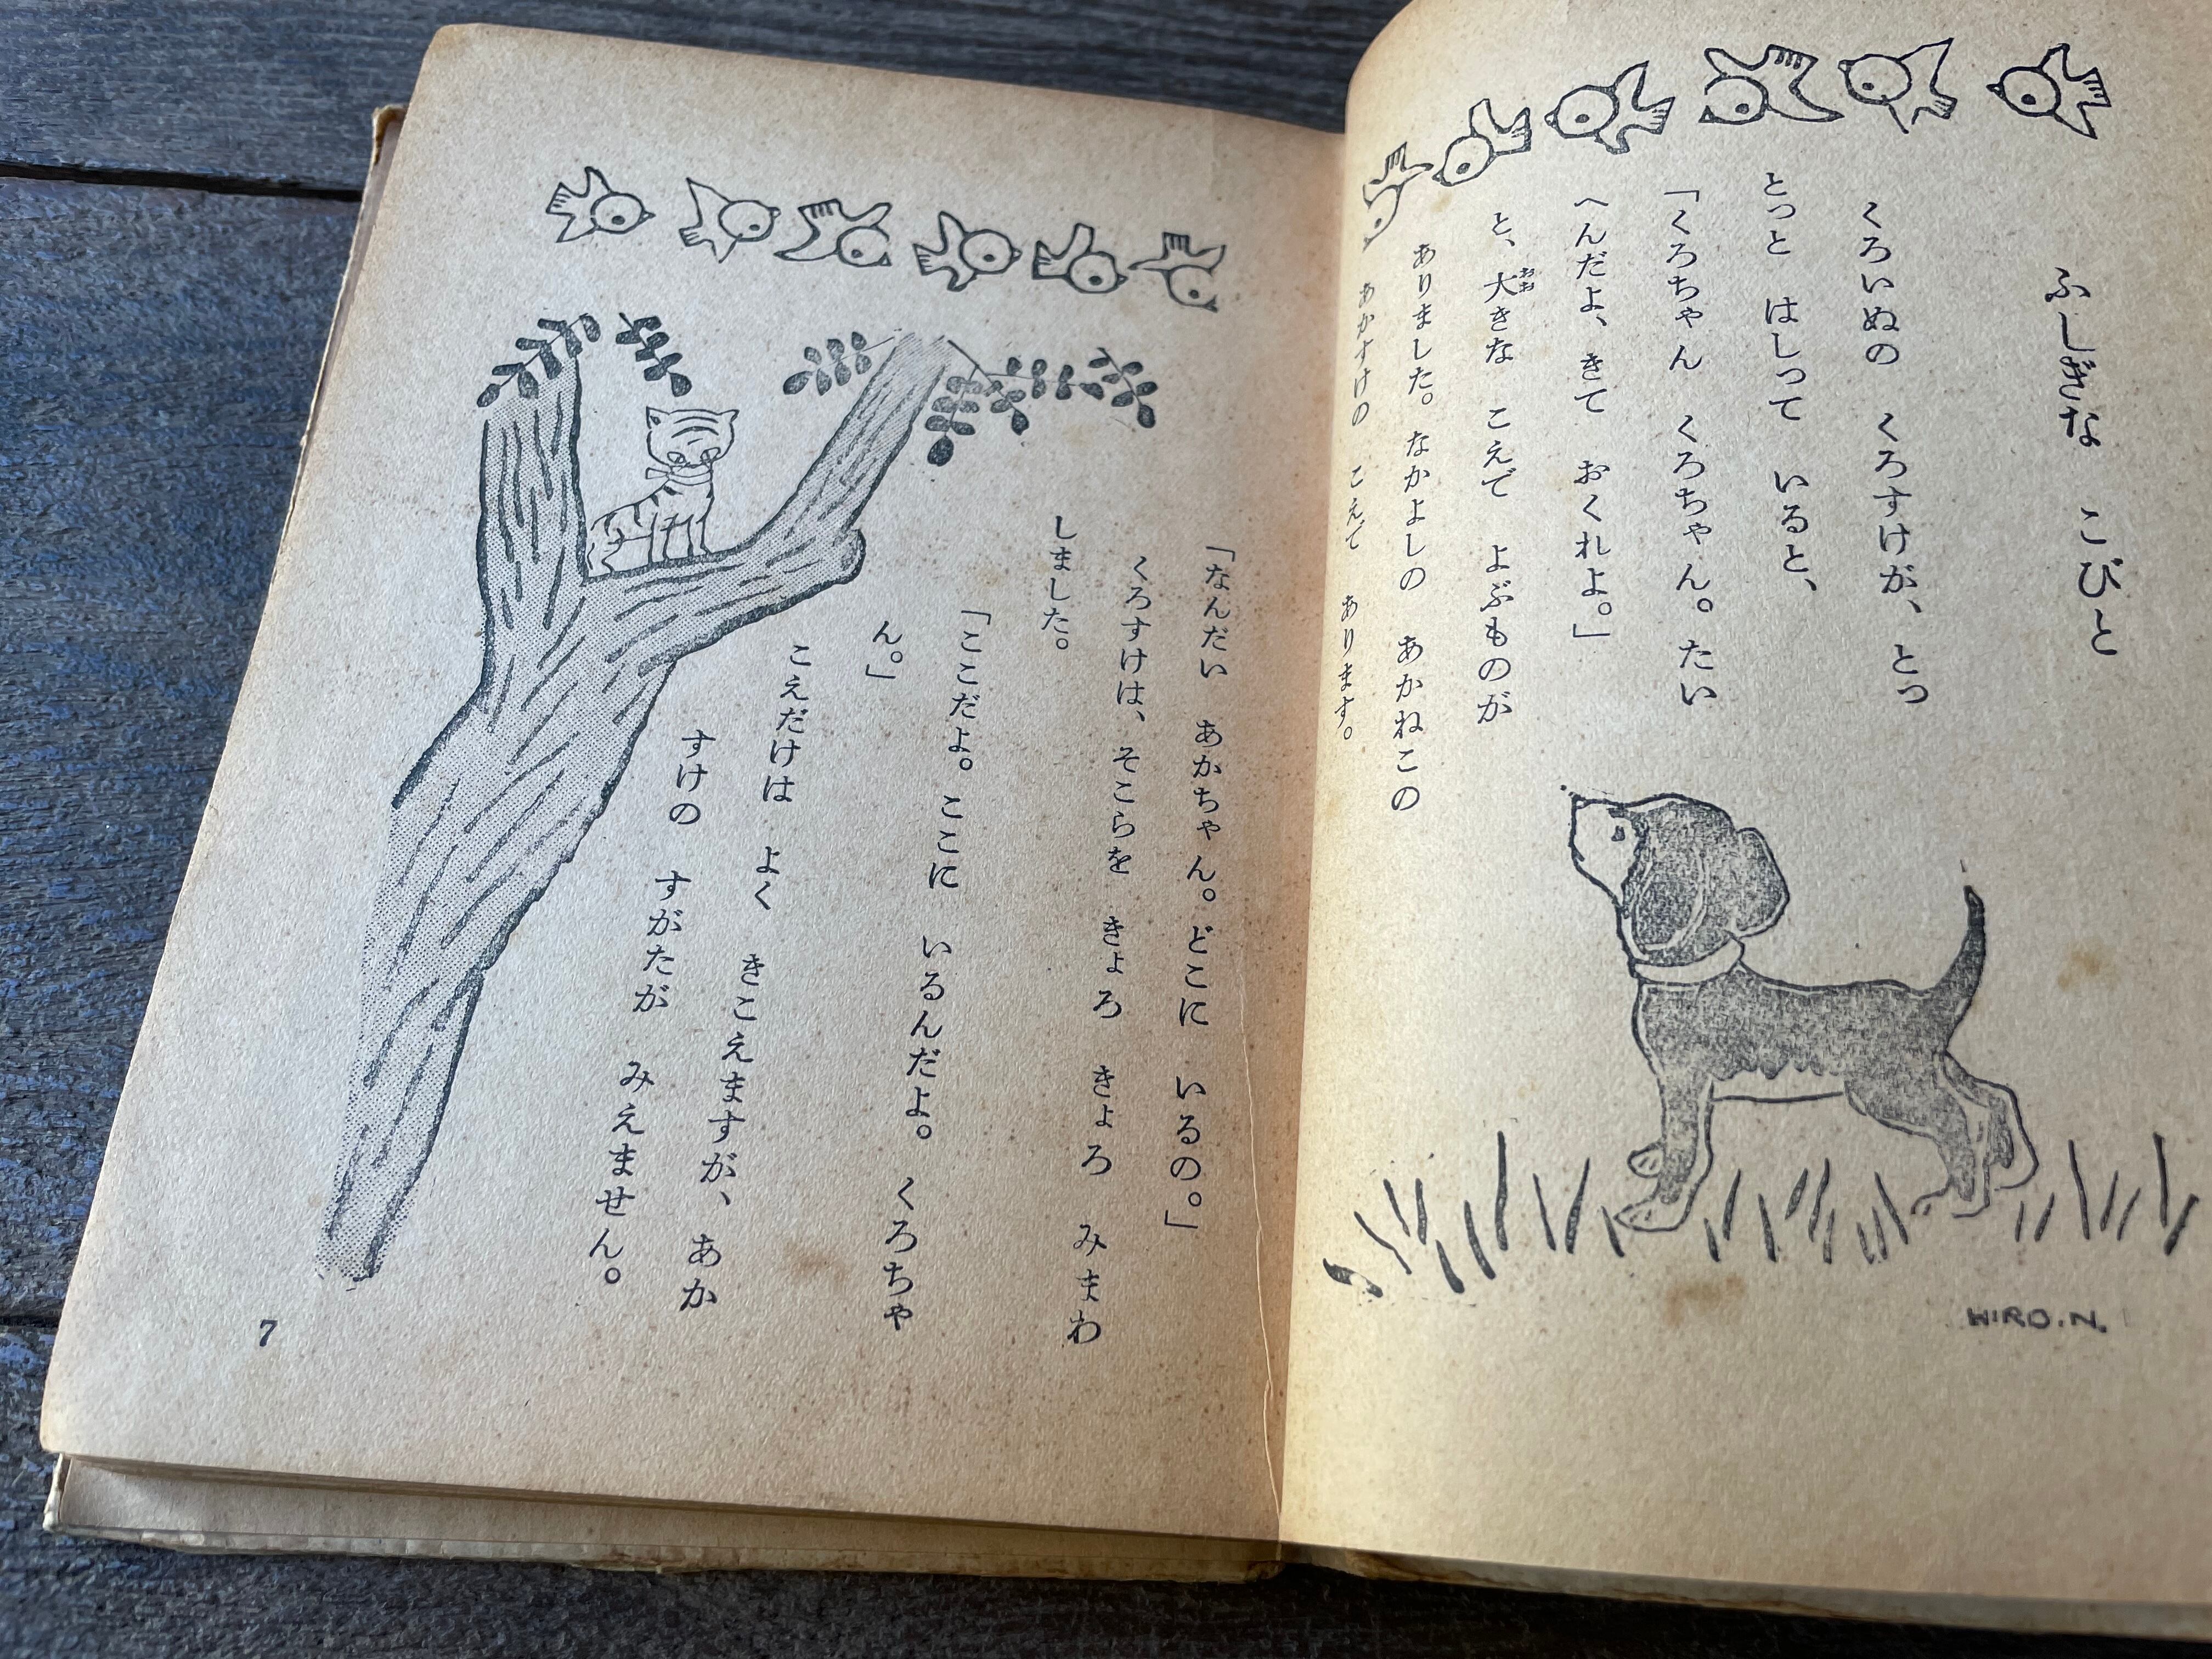 ふしぎな こびと
くろいぬの くろすけが、とっ
とっと はしって いると、
「くろちゃん くろちゃん。たい
へんだよ、きて おくれよ。」
と、大きな こえで よぶものが
おお
ありました。なかよしの あかねこの
あかすけの こえで あります。
HIRO.N.
「なんだい あかちゃん。どこに いるの。」
くろすけは、そこらを きょろ きょろ みまわ
しました。
「ここだよ。ここに いるんだよ。くろちゃ
ん。」
こえだけは よく きこえますが、あか
すけの すがたが みえません。
7